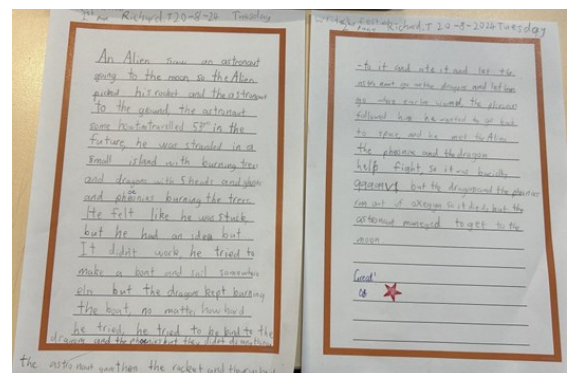 Richard.T 20-8-24 Tuesday
An Alien saw an astronaut
going to the moon so the Alien
picked his rocket and the astronaut
to the ground the astronaut
some how travelled 5 in the
future he was stranded in a
small island with burning trees
and dragons with 5 heads and
and pheonixs burning the trees
He felt like he was stuck,
but he had an idea but
It didn't work he tried to
make a boat and sail somewhere
els but the dragons kept burning
the boat, no matter how hard
he tried, he tried to be kind to the
dragons and the pheonixs but they didn't
the astronaut the rocket and
Richard.T 20-8-2024 Tuesday
-to it and ate it and let the
astronaut go on the dragon and let him
go the pheonix
followed him he wanted to go back
to space and he met the Alien
the pheonix and the dragon
help fight so it was
but the dragon and the pheonix
run out of oxegon so it died but the
astronaut maneged to get to the
moon
Great!